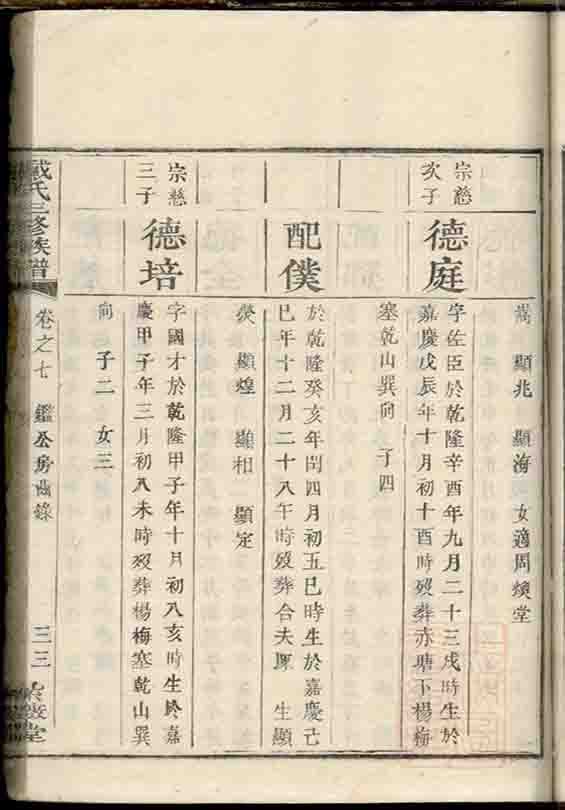 嵩 顯兆 顯海 女適周煥堂
宗慈
次子
德庭
字佐臣於乾隆辛酉年九月二十三戌時生於
嘉慶戊辰年十月初十酉時歿葬赤塘下楊梅
塞乾山巽向 子四
配僕
於乾隆癸亥年閏四月初五巳時生於嘉慶己
巳年十二月二十八午時歿葬合夫厡 生顯
熒 顯煌 顯相 顯定
宗慈
三子
德培
字國才於乾隆甲子年十月初八亥時生於嘉
慶甲子年三月初八未時歿葬楊梅塞乾山巽
向 子二 女三
戴氏三修族譜
卷之七 鑑公房齒錄
三三